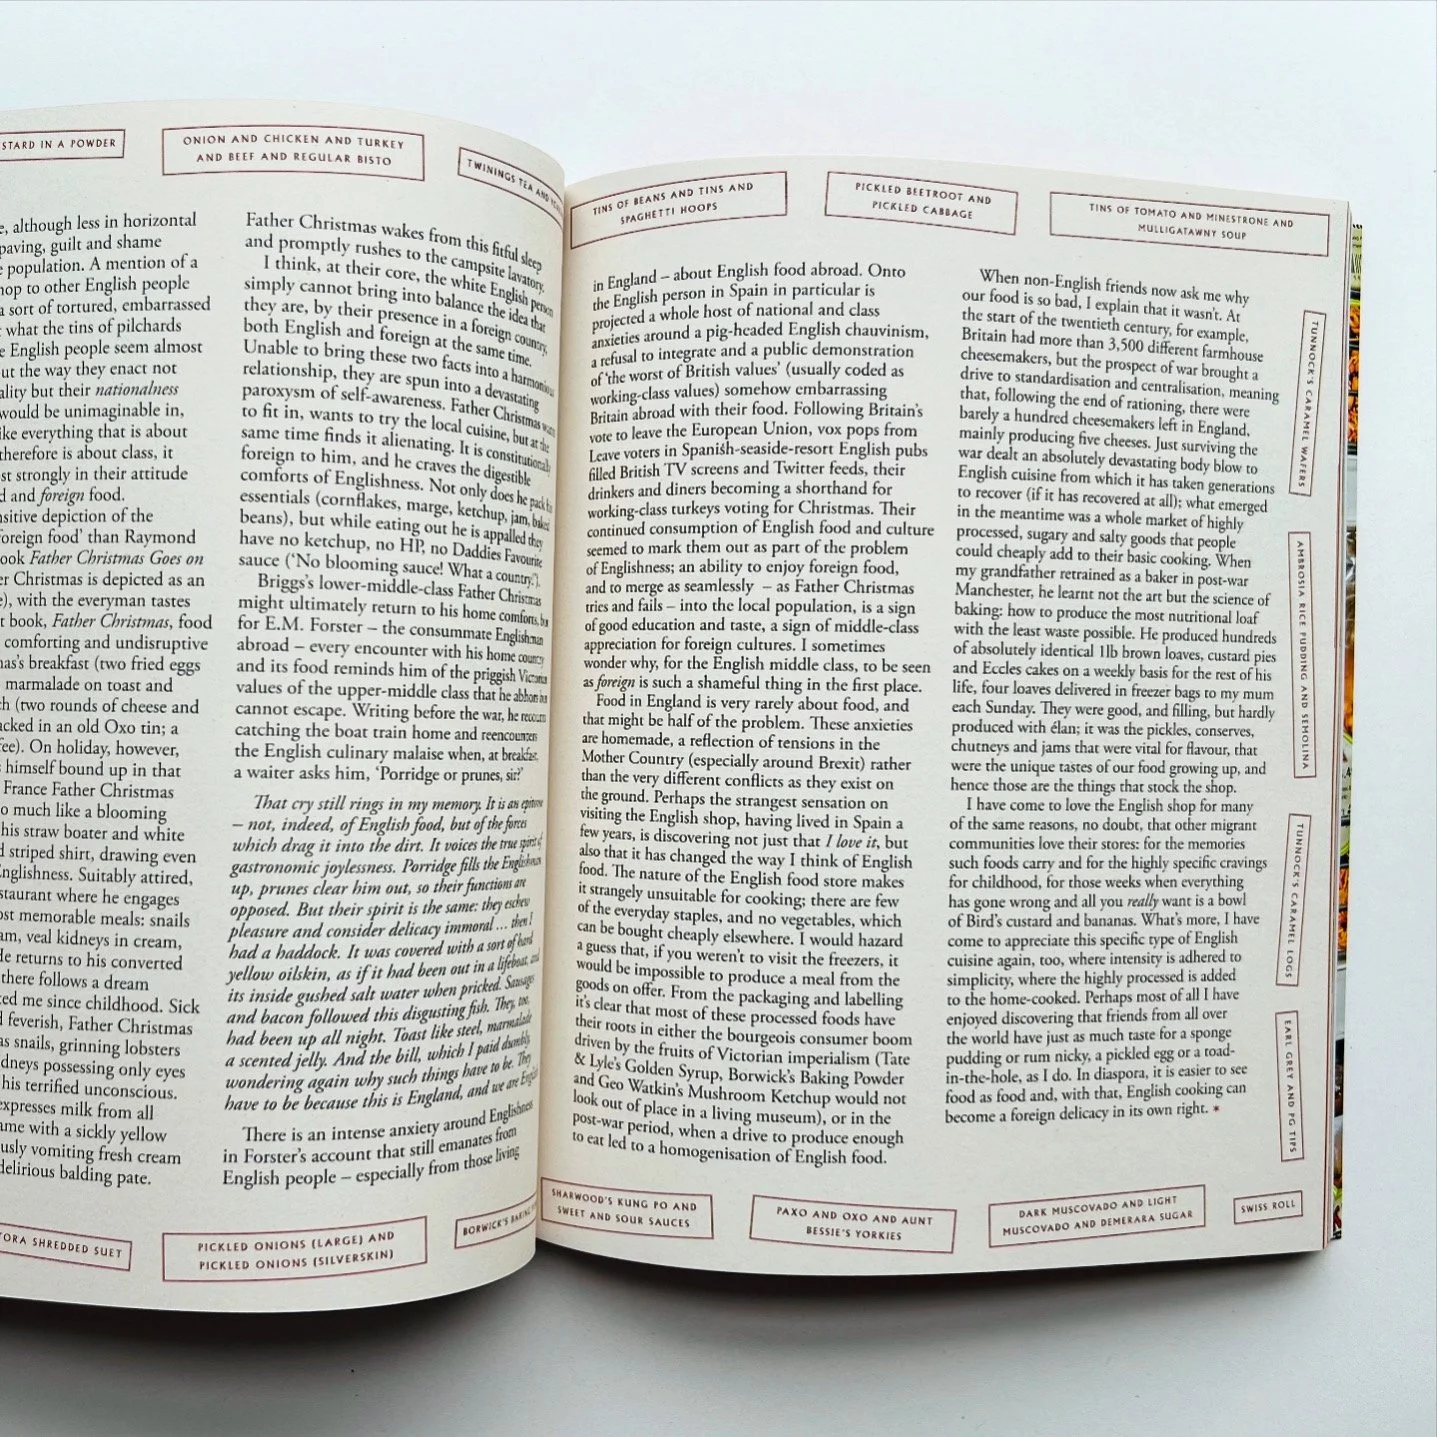 STARD IN A POWDER
ONION AND CHICKEN AND TURKEY
AND BEEF AND REGULAR BISTO
TWININGS TEA AND
e, although less in horizontal
paving, guilt and shame
e population. A mention of a
hop to other English people
a sort of tortured, embarrassed
what the tins of pilchards
e English people seem almost
ut the way they enact not
ality but their nationalness
would be unimaginable in,
ike everything that is about
therefore is about class, it
st strongly in their attitude
d and foreign food.
nsitive depiction of the
foreign food' than Raymond
ook Father Christmas Goes on
er Christmas is depicted as an
e), with the everyman tastes
t book, Father Christmas, food
comforting and undisruptive
nas's breakfast (two fried eggs
marmalade on toast and
ch (two rounds of cheese and
acked in an old Oxo tin; a
fee). On holiday, however,
s himself bound up in that
France Father Christmas
o much like a blooming
his straw boater and white
d striped shirt, drawing even
Englishness. Suitably attired,
staurant where he engages
ost memorable meals: snails
am, veal kidneys in cream,
He returns to his converted
there follows a dream
ted me since childhood. Sick
d feverish, Father Christmas
as snails, grinning lobsters
dneys possessing only eyes
his terrified unconscious.
expresses milk from all
ame with a sickly yellow
usly vomiting fresh cream
delirious balding pate.
Father Christmas wakes from this fitful sleep
and promptly rushes to the campsite lavatory.
I think, at their core, the white English person
simply cannot bring into balance the idea that
they are, by their presence in a foreign country,
both English and foreign at the same time.
Unable to bring these two facts into a harmonious
relationship, they are spun into a devastating
paroxysm of self-awareness. Father Christmas wants
to fit in, wants to try the local cuisine, but at the
same time finds it alienating. It is constitutionally
foreign to him, and he craves the digestible
comforts of Englishness. Not only does he pack his
essentials (cornflakes, marge, ketchup, jam, baked
beans), but while eating out he is appalled they
have no ketchup, no HP, no Daddies Favourite
sauce ('No blooming sauce! What a country!').
Briggs's lower-middle-class Father Christmas
might ultimately return to his home comforts, but
for E.M. Forster – the consummate Englishman
abroad – every encounter with his home country
and its food reminds him of the priggish Victorian
values of the upper-middle class that he abhors but
cannot escape. Writing before the war, he recounts
catching the boat train home and reencounters
the English culinary malaise when, at breakfast,
a waiter asks him, 'Porridge or prunes, sir?'
That cry still rings in my memory. It is an epitome
– not, indeed, of English food, but of the forces
which drag it into the dirt. It voices the true spirit of
gastronomic joylessness. Porridge fills the Englishman
up, prunes clear him out, so their functions are
opposed. But their spirit is the same: they eschew
pleasure and consider delicacy immoral ... then I
had a haddock. It was covered with a sort of hard
yellow oilskin, as if it had been out in a lifeboat, and
its inside gushed salt water when pricked. Sausages
and bacon followed this disgusting fish. They, too,
had been up all night. Toast like steel, marmalade
a scented jelly. And the bill, which I paid dumbly,
wondering again why such things have to be. They
have to be because this is England, and we are English
There is an intense anxiety around Englishness
in Forster's account that still emanates from
English people – especially from those living
TORA SHREDDED SUET
PICKLED ONIONS (LARGE) AND
PICKLED ONIONS (SILVERSKIN)
BORWICK'S BAKING
TINS OF BEANS AND TINS AND
SPAGHETTI HOOPS
PICKLED BEETROOT AND
PICKLED CABBAGE
TINS OF TOMATO AND MINESTRONE AND
MULLIGATAWNY SOUP
in England – about English food abroad. Onto
the English person in Spain in particular is
projected a whole host of national and class
anxieties around a pig-headed English chauvinism,
a refusal to integrate and a public demonstration
of 'the worst of British values' (usually coded as
working-class values) somehow embarrassing
Britain abroad with their food. Following Britain's
vote to leave the European Union, vox pops from
Leave voters in Spanish-seaside-resort English pubs
filled British TV screens and Twitter feeds, their
drinkers and diners becoming a shorthand for
working-class turkeys voting for Christmas. Their
continued consumption of English food and culture
seemed to mark them out as part of the problem
of Englishness; an ability to enjoy foreign food,
and to merge as seamlessly – as Father Christmas
tries and fails – into the local population, is a sign
of good education and taste, a sign of middle-class
appreciation for foreign cultures. I sometimes
wonder why, for the English middle class, to be seen
as foreign is such a shameful thing in the first place.
Food in England is very rarely about food, and
that might be half of the problem. These anxieties
are homemade, a reflection of tensions in the
Mother Country (especially around Brexit) rather
than the very different conflicts as they exist on
the ground. Perhaps the strangest sensation on
visiting the English shop, having lived in Spain a
few years, is discovering not just that I love it, but
also that it has changed the way I think of English
food. The nature of the English food store makes
it strangely unsuitable for cooking; there are few
of the everyday staples, and no vegetables, which
can be bought cheaply elsewhere. I would hazard
a guess that, if you weren't to visit the freezers, it
would be impossible to produce a meal from the
goods on offer. From the packaging and labelling
it's clear that most of these processed foods have
their roots in either the bourgeois consumer boom
driven by the fruits of Victorian imperialism (Tate
& Lyle's Golden Syrup, Borwick's Baking Powder
and Geo Watkin's Mushroom Ketchup would not
look out of place in a living museum), or in the
post-war period, when a drive to produce enough
to eat led to a homogenisation of English food.
When non-English friends now ask me why
our food is so bad, I explain that it wasn't. At
the start of the twentieth century, for example,
Britain had more than 3,500 different farmhouse
cheesemakers, but the prospect of war brought a
drive to standardisation and centralisation, meaning
that, following the end of rationing, there were
barely a hundred cheesemakers left in England,
mainly producing five cheeses. Just surviving the
war dealt an absolutely devastating body blow to
English cuisine from which it has taken generations
to recover (if it has recovered at all); what emerged
in the meantime was a whole market of highly
processed, sugary and salty goods that people
could cheaply add to their basic cooking. When
my grandfather retrained as a baker in post-war
Manchester, he learnt not the art but the science of
baking: how to produce the most nutritional loaf
with the least waste possible. He produced hundreds
of absolutely identical 1lb brown loaves, custard pies
and Eccles cakes on a weekly basis for the rest of his
life, four loaves delivered in freezer bags to my mum
each Sunday. They were good, and filling, but hardly
produced with élan; it was the pickles, conserves,
chutneys and jams that were vital for flavour, that
were the unique tastes of our food growing up, and
hence those are the things that stock the shop.
I have come to love the English shop for many
of the same reasons, no doubt, that other migrant
communities love their stores: for the memories
such foods carry and for the highly specific cravings
for childhood, for those weeks when everything
has gone wrong and all you really want is a bowl
of Bird's custard and bananas. What's more, I have
come to appreciate this specific type of English
cuisine again, too, where intensity is adhered to
simplicity, where the highly processed is added
to the home-cooked. Perhaps most of all I have
enjoyed discovering that friends from all over
the world have just as much taste for a sponge
pudding or rum nicky, a pickled egg or a toad-
in-the-hole, as I do. In diaspora, it is easier to see
food as food and, with that, English cooking can
become a foreign delicacy in its own right. *
TUNNOCK'S CARAMEL WAFERS
AMBROSIA RICE PUDDING AND SEMOLINA
TUNNOCK'S CARAMEL LOGS
EARL GREY AND PG TIPS
SHARWOOD'S KUNG PO AND
SWEET AND SOUR SAUCES
PAXO AND OXO AND AUNT
BESSIE'S YORKIES
DARK MUSCOVADO AND LIGHT
MUSCOVADO AND DEMERARA SUGAR
SWISS ROLL